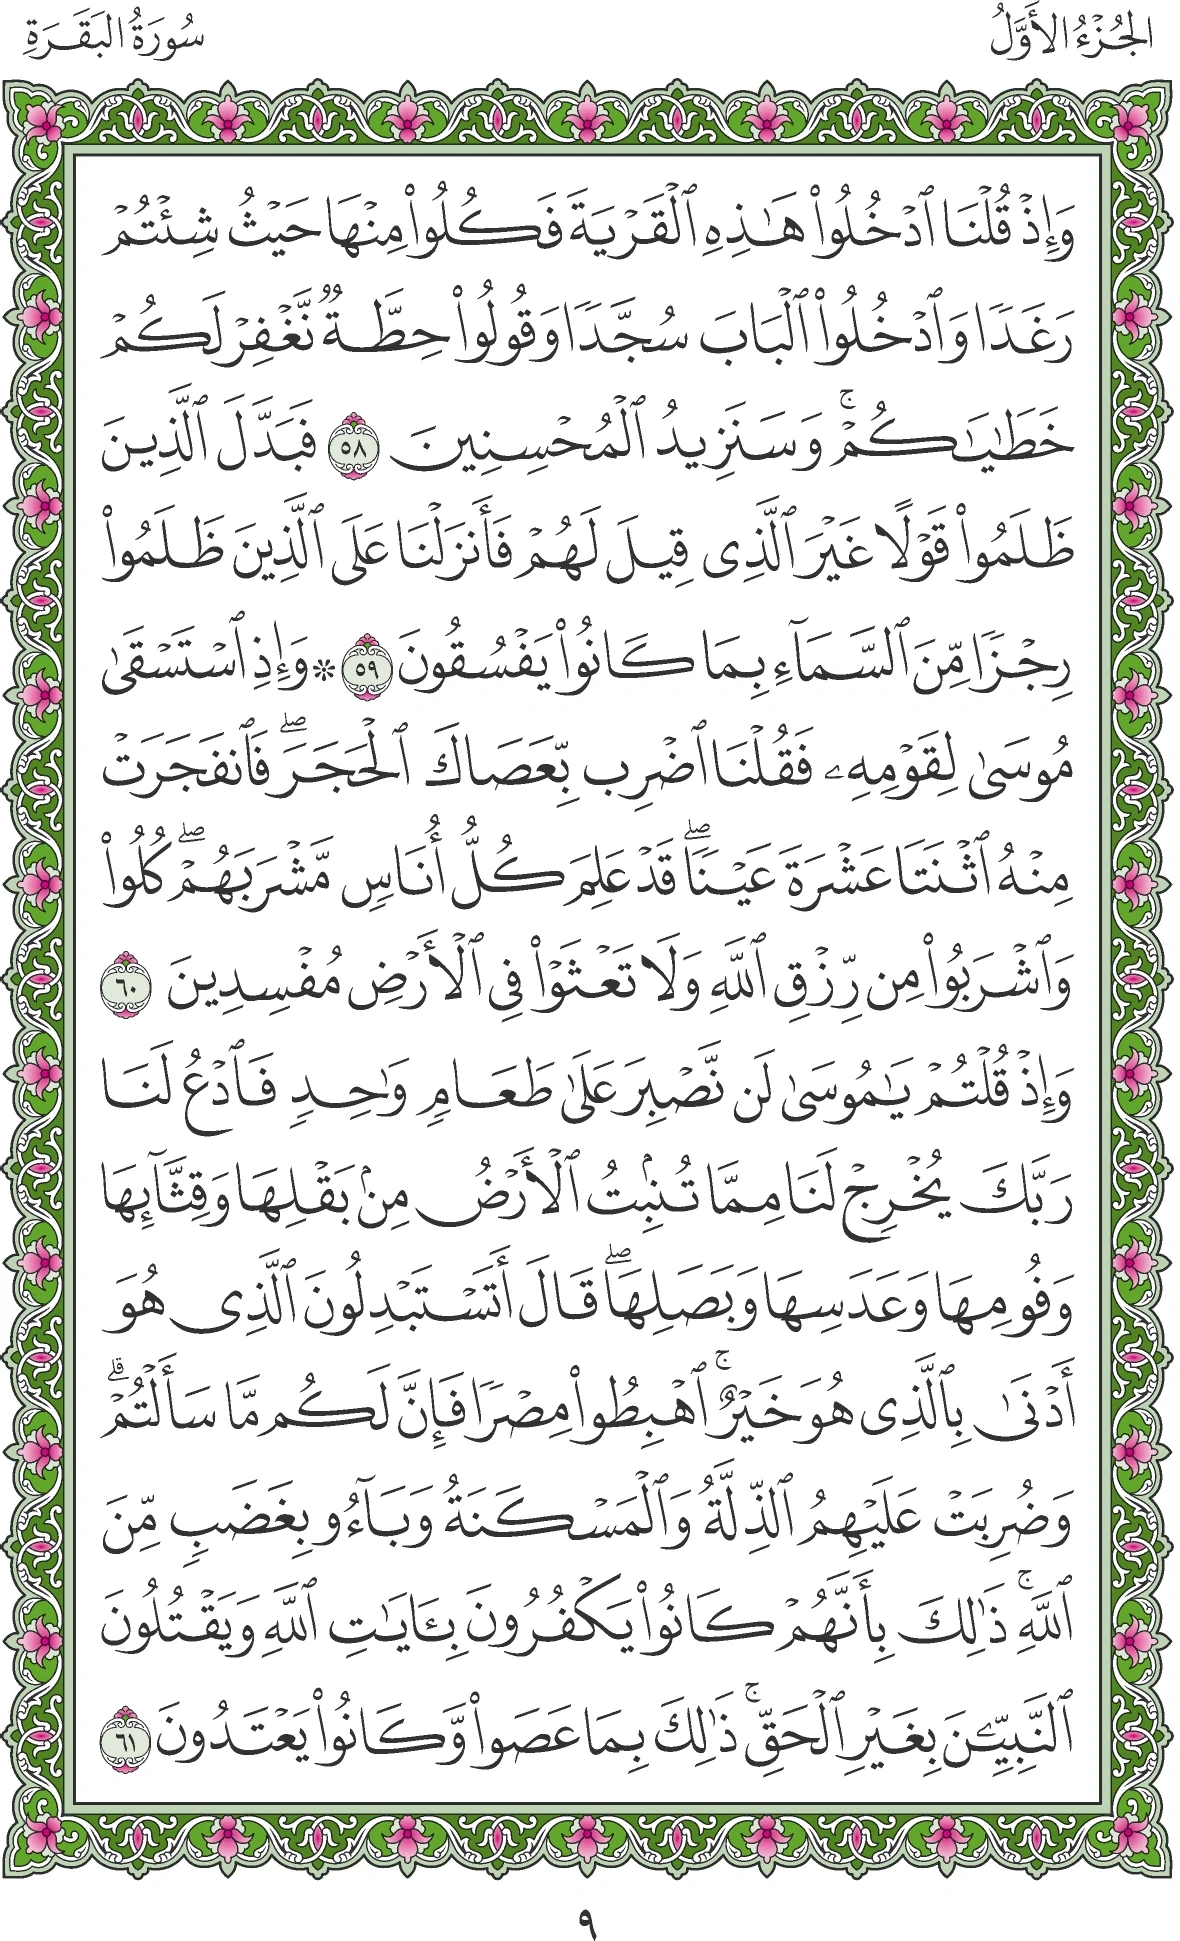 الجُزْءُ الأَوَّلُ
سُورَةُ البَقَرَةِ
وَإِذْ قُلْنَا ٱدْخُلُواْ هَٰذِهِ ٱلْقَرْيَةَ فَكُلُواْ مِنْهَا حَيْثُ شِئْتُمْ
رَغَدًا وَٱدْخُلُواْ ٱلْبَابَ سُجَّدًا وَقُولُواْ حِطَّةٌ نَّغْفِرْ لَكُمْ
خَطَٰيَٰكُمْۚ وَسَنَزِيدُ ٱلْمُحْسِنِينَ ٥٨ فَبَدَّلَ ٱلَّذِينَ
ظَلَمُواْ قَوْلًا غَيْرَ ٱلَّذِى قِيلَ لَهُمْ فَأَنزَلْنَا عَلَى ٱلَّذِينَ ظَلَمُواْ
رِجْزًا مِّنَ ٱلسَّمَآءِ بِمَا كَانُواْ يَفْسُقُونَ ٥٩ * وَإِذِ ٱسْتَسْقَىٰ
مُوسَىٰ لِقَوْمِهِۦ فَقُلْنَا ٱضْرِب بِّعَصَاكَ ٱلْحَجَرَۖ فَٱنفَجَرَتْ
مِنْهُ ٱثْنَتَا عَشْرَةَ عَيْنًاۖ قَدْ عَلِمَ كُلُّ أُنَاسٍ مَّشْرَبَهُمْۖ كُلُواْ
وَٱشْرَبُواْ مِن رِّزْقِ ٱللَّهِ وَلَا تَعْثَوْاْ فِى ٱلْأَرْضِ مُفْسِدِينَ ٦٠
وَإِذْ قُلْتُمْ يَٰمُوسَىٰ لَن نَّصْبِرَ عَلَىٰ طَعَامٍ وَٰحِدٍ فَٱدْعُ لَنَا
رَبَّكَ يُخْرِجْ لَنَا مِمَّا تُنۢبِتُ ٱلْأَرْضُ مِنۢ بَقْلِهَا وَقِثَّآئِهَا
وَفُومِهَا وَعَدَسِهَا وَبَصَلِهَاۖ قَالَ أَتَسْتَبْدِلُونَ ٱلَّذِى هُوَ
أَدْنَىٰ بِٱلَّذِى هُوَ خَيْرٌۚ ٱهْبِطُواْ مِصْرًا فَإِنَّ لَكُم مَّا سَأَلْتُمْۗ
وَضُرِبَتْ عَلَيْهِمُ ٱلذِّلَّةُ وَٱلْمَسْكَنَةُ وَبَآءُو بِغَضَبٍ مِّنَ
ٱللَّهِۚ ذَٰلِكَ بِأَنَّهُمْ كَانُواْ يَكْفُرُونَ بِـَٔايَٰتِ ٱللَّهِ وَيَقْتُلُونَ
ٱلنَّبِيِّـۧنَ بِغَيْرِ ٱلْحَقِّۚ ذَٰلِكَ بِمَا عَصَواْ وَّكَانُواْ يَعْتَدُونَ ٦١
٩